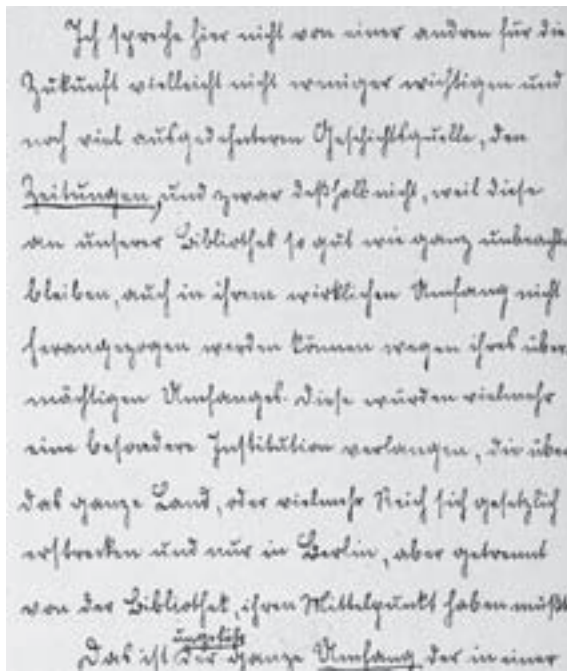 Ich spreche hier nicht von einer andren für die
Zukunft vielleicht nicht weniger wichtigen und
noch viel ausgedehnteren Geschichtsquelle, den
Zeitungen, und zwar deßhalb nicht, weil diese
an unserer Bibliothek so gut wie ganz unbeachtet
bleiben, auch in ihrem wirklichen Umfang nicht
herangezogen werden können wegen ihres über-
mächtigen Umfanges. Diese würden vielmehr
eine besondere Institution verlangen, die über
das ganze Land, oder vielmehr Reich sich gesetzlich
erstrecken und nur in Berlin, aber getrennt
von der Bibliothek, ihren Mittelpunkt haben müßte
ungefähr
Das ist der ganze Umfang der in einer